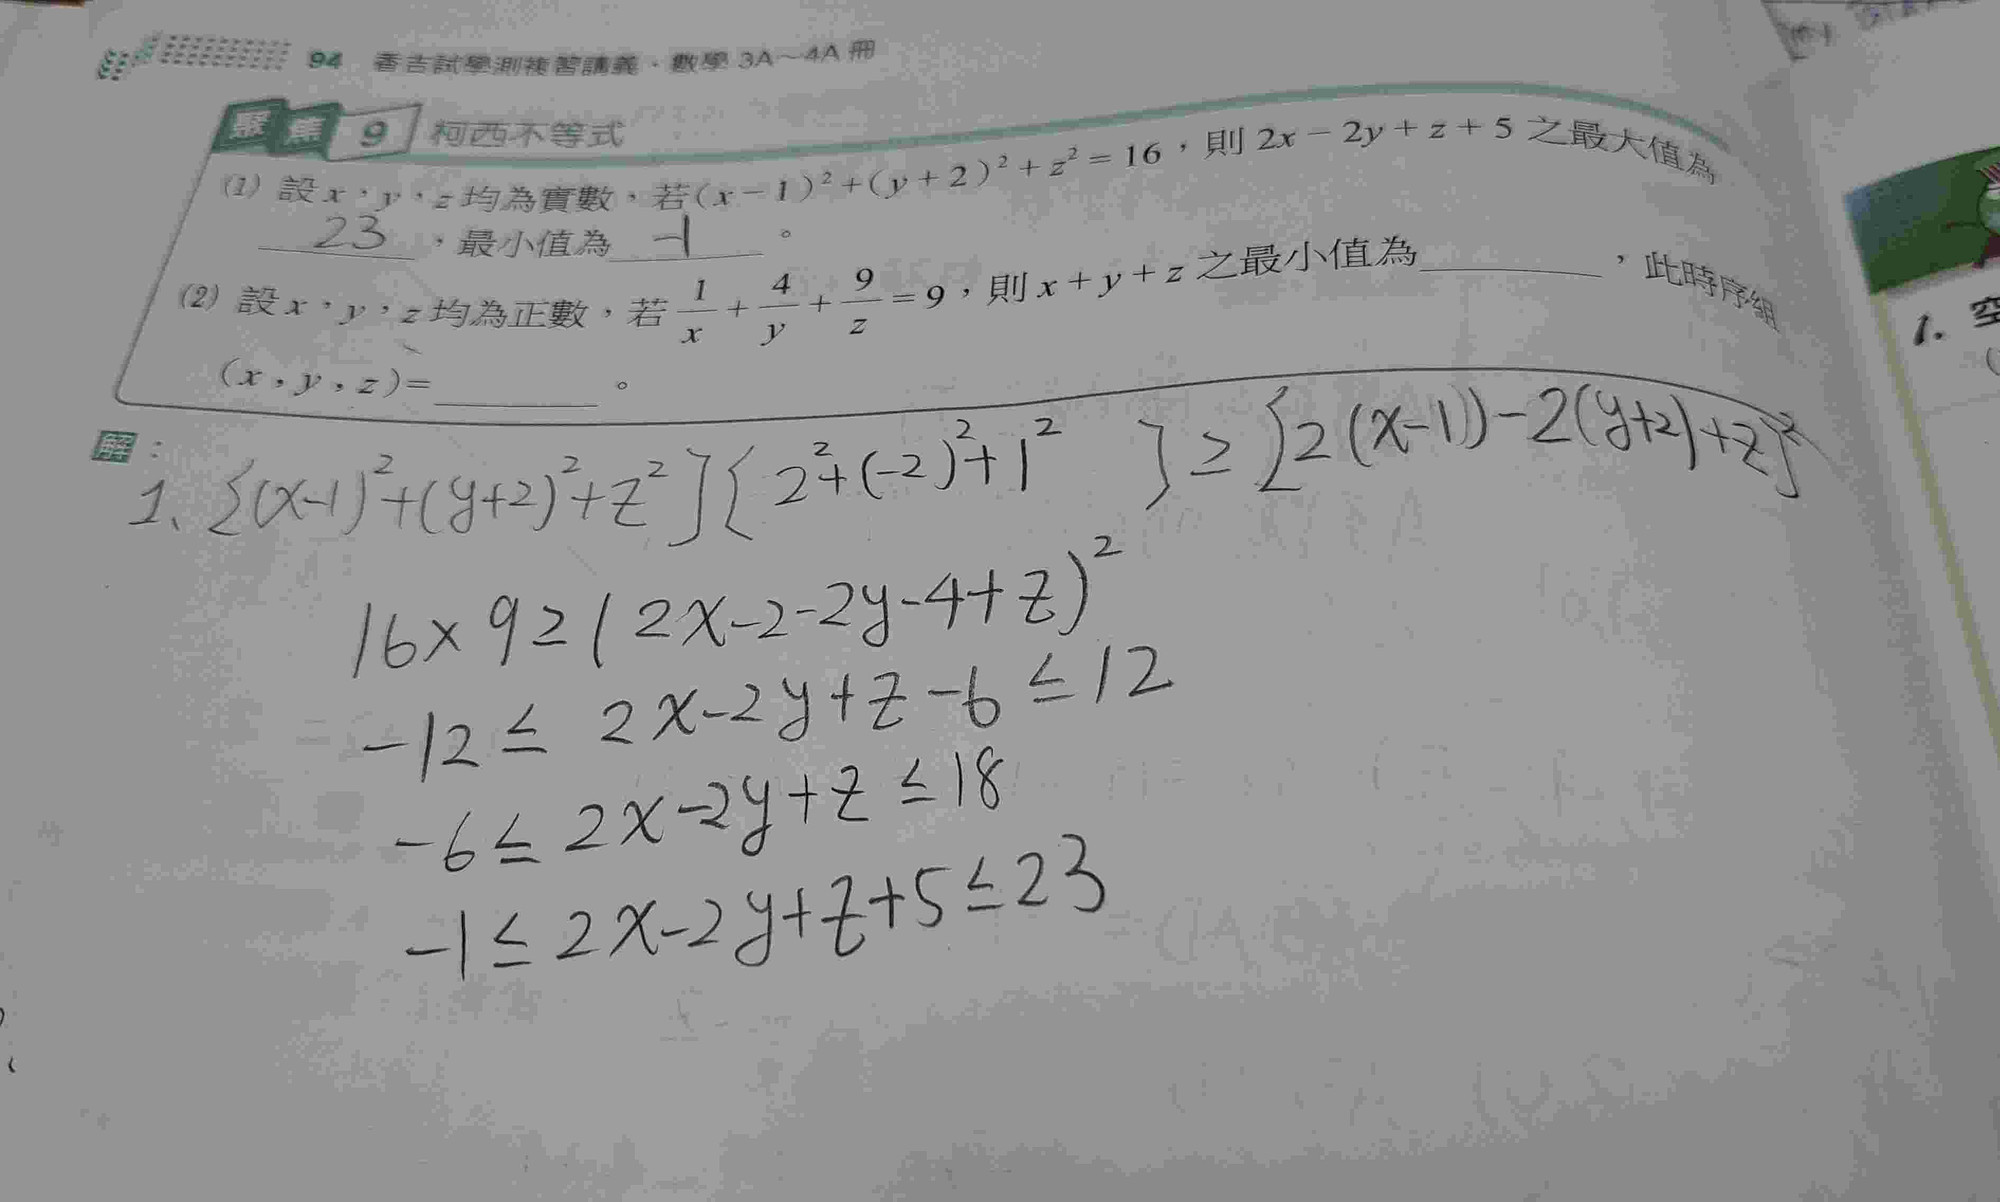 94 香吉試學測複習講義．數學 3A～4A 冊
聚焦 9 柯西不等式
(1) 設 x，y，z 均為實數，若(x－1)²＋(y＋2)²＋z²＝16，則 2x－2y＋z＋5 之最大值為
23，最小值為 -1。
(2) 設 x，y，z 均為正數，若 1/x＋4/y＋9/z＝9，則 x＋y＋z 之最小值為________，此時序組
(x，y，z)＝________。
解：
1、{(x-1)²+(y+2)²+z²]{2²+(-2)²+1²} ≥ {2(x-1))-2(y+2)+z]²
16×9≥(2x-2-2y-4+z)²
-12≤ 2x-2y+z-6≤12
-6≤2x-2y+z≤18
-1≤2x-2y+z+5≤23
1. 空